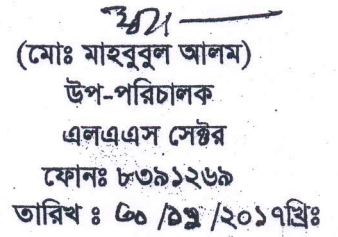 (মোঃ মাহবুবুল আলম)
উপ-পরিচালক
এলএএস সেক্টর
ফোনঃ ৮৩৯১২৬৯
তারিখ ঃ ৩০ /১১ /২০১৭খ্রিঃ